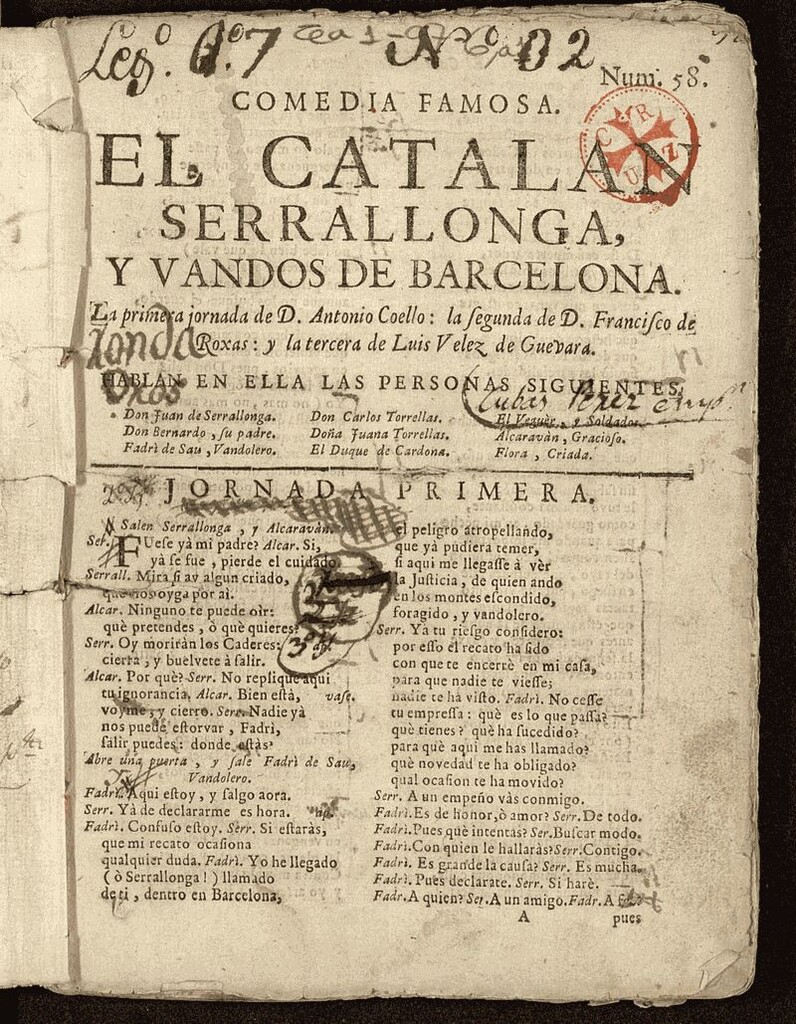 Leg.º 6.º 7
Nº 32
Num. 58.
CRUZ
COMEDIA FAMOSA.
EL CATALAN
SERRALLONGA,
Y VANDOS DE BARCELONA.
La primera jornada de D. Antonio Coello: la ſegunda de D. Franciſco de
Roxas: y la tercera de Luis Velez de Guevara.
HABLAN EN ELLA LAS PERSONAS SIGUIENTES.
Don Juan de Serrallonga. Don Carlos Torrellas. El Veguèr, y Soldados.
Don Bernardo, ſu padre. Doña Juana Torrellas. Alcaravàn, Gracioſo.
Fadrì de Sau, Vandolero. El Duque de Cardona. Flora, Criada.
JORNADA PRIMERA.
Salen Serrallonga, y Alcaravàn.
Ser. FUeſe yà mi padre? Alcar. Si,
yà ſe fue, pierde el cuidado.
Serrall. Mira ſi ay algun criado,
que nos oyga por aì.
Alcar. Ninguno te puede oìr:
què pretendes, ò què quieres?
Serr. Oy moriràn los Caderes:
cierra, y buelvete à ſalir.
Alcar. Por què? Serr. No replique aqui
tu ignorancia. Alcar. Bien eſtà, vaſe.
voyme, y cierro. Serr. Nadie yà
nos puede eſtorvar, Fadrì,
ſalir puedes: donde eſtàs?
Abre una puerta, y ſale Fadrì de Sau,
Vandolero.
Fadrì. Aqui eſtoy, y ſalgo aora.
Serr. Yà de declararme es hora. ap.
Fadrì. Confuſo eſtoy. Serr. Si eſtaràs,
que mi recato ocaſiona
qualquier duda. Fadrì. Yo he llegado
(ò Serrallonga!) llamado
de ti, dentro en Barcelona,
el peligro atropellando,
que yà pudiera temer,
ſi aqui me llegaſſe à vèr
la Juſticia, de quien ando
en los montes eſcondido,
foragido, y vandolero.
Serr. Yà tu rieſgo conſidero:
por eſſo el recato ha ſido
con que te encerrè en mi caſa,
para que nadie te vieſſe;
nadie te hà viſto. Fadrì. No ceſſe
tu empreſſa: què es lo que paſſa?
què tienes? què ha ſucedido?
para què aqui me has llamado?
què novedad te ha obligado?
qual ocaſion te ha movido?
Serr. A un empeño vàs conmigo.
Fadrì. Es de honor, ò amor? Serr. De todo.
Fadrì. Pues què intentas? Ser. Buſcar modo.
Fadrì. Con quien le hallaràs? Serr. Contigo.
Fadrì. Es grande la cauſa? Serr. Es mucha.
Fadrì. Pues declarate. Serr. Si harè.
Fadr. A quien? Ser. A un amigo. Fadr. A
A pues